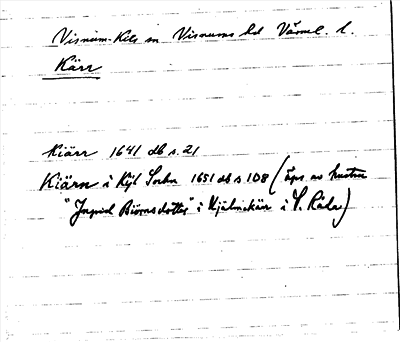 Visnum-Kils sn Visnums hd Värml. l.
Kärr
Kiärr 1641 db s. 21
Kiärn i Kijl Sockn 1651 db s 108 (äges av hustru
"Ingrid Biörnsdotter" i Hjälmakärr i S. Råda)